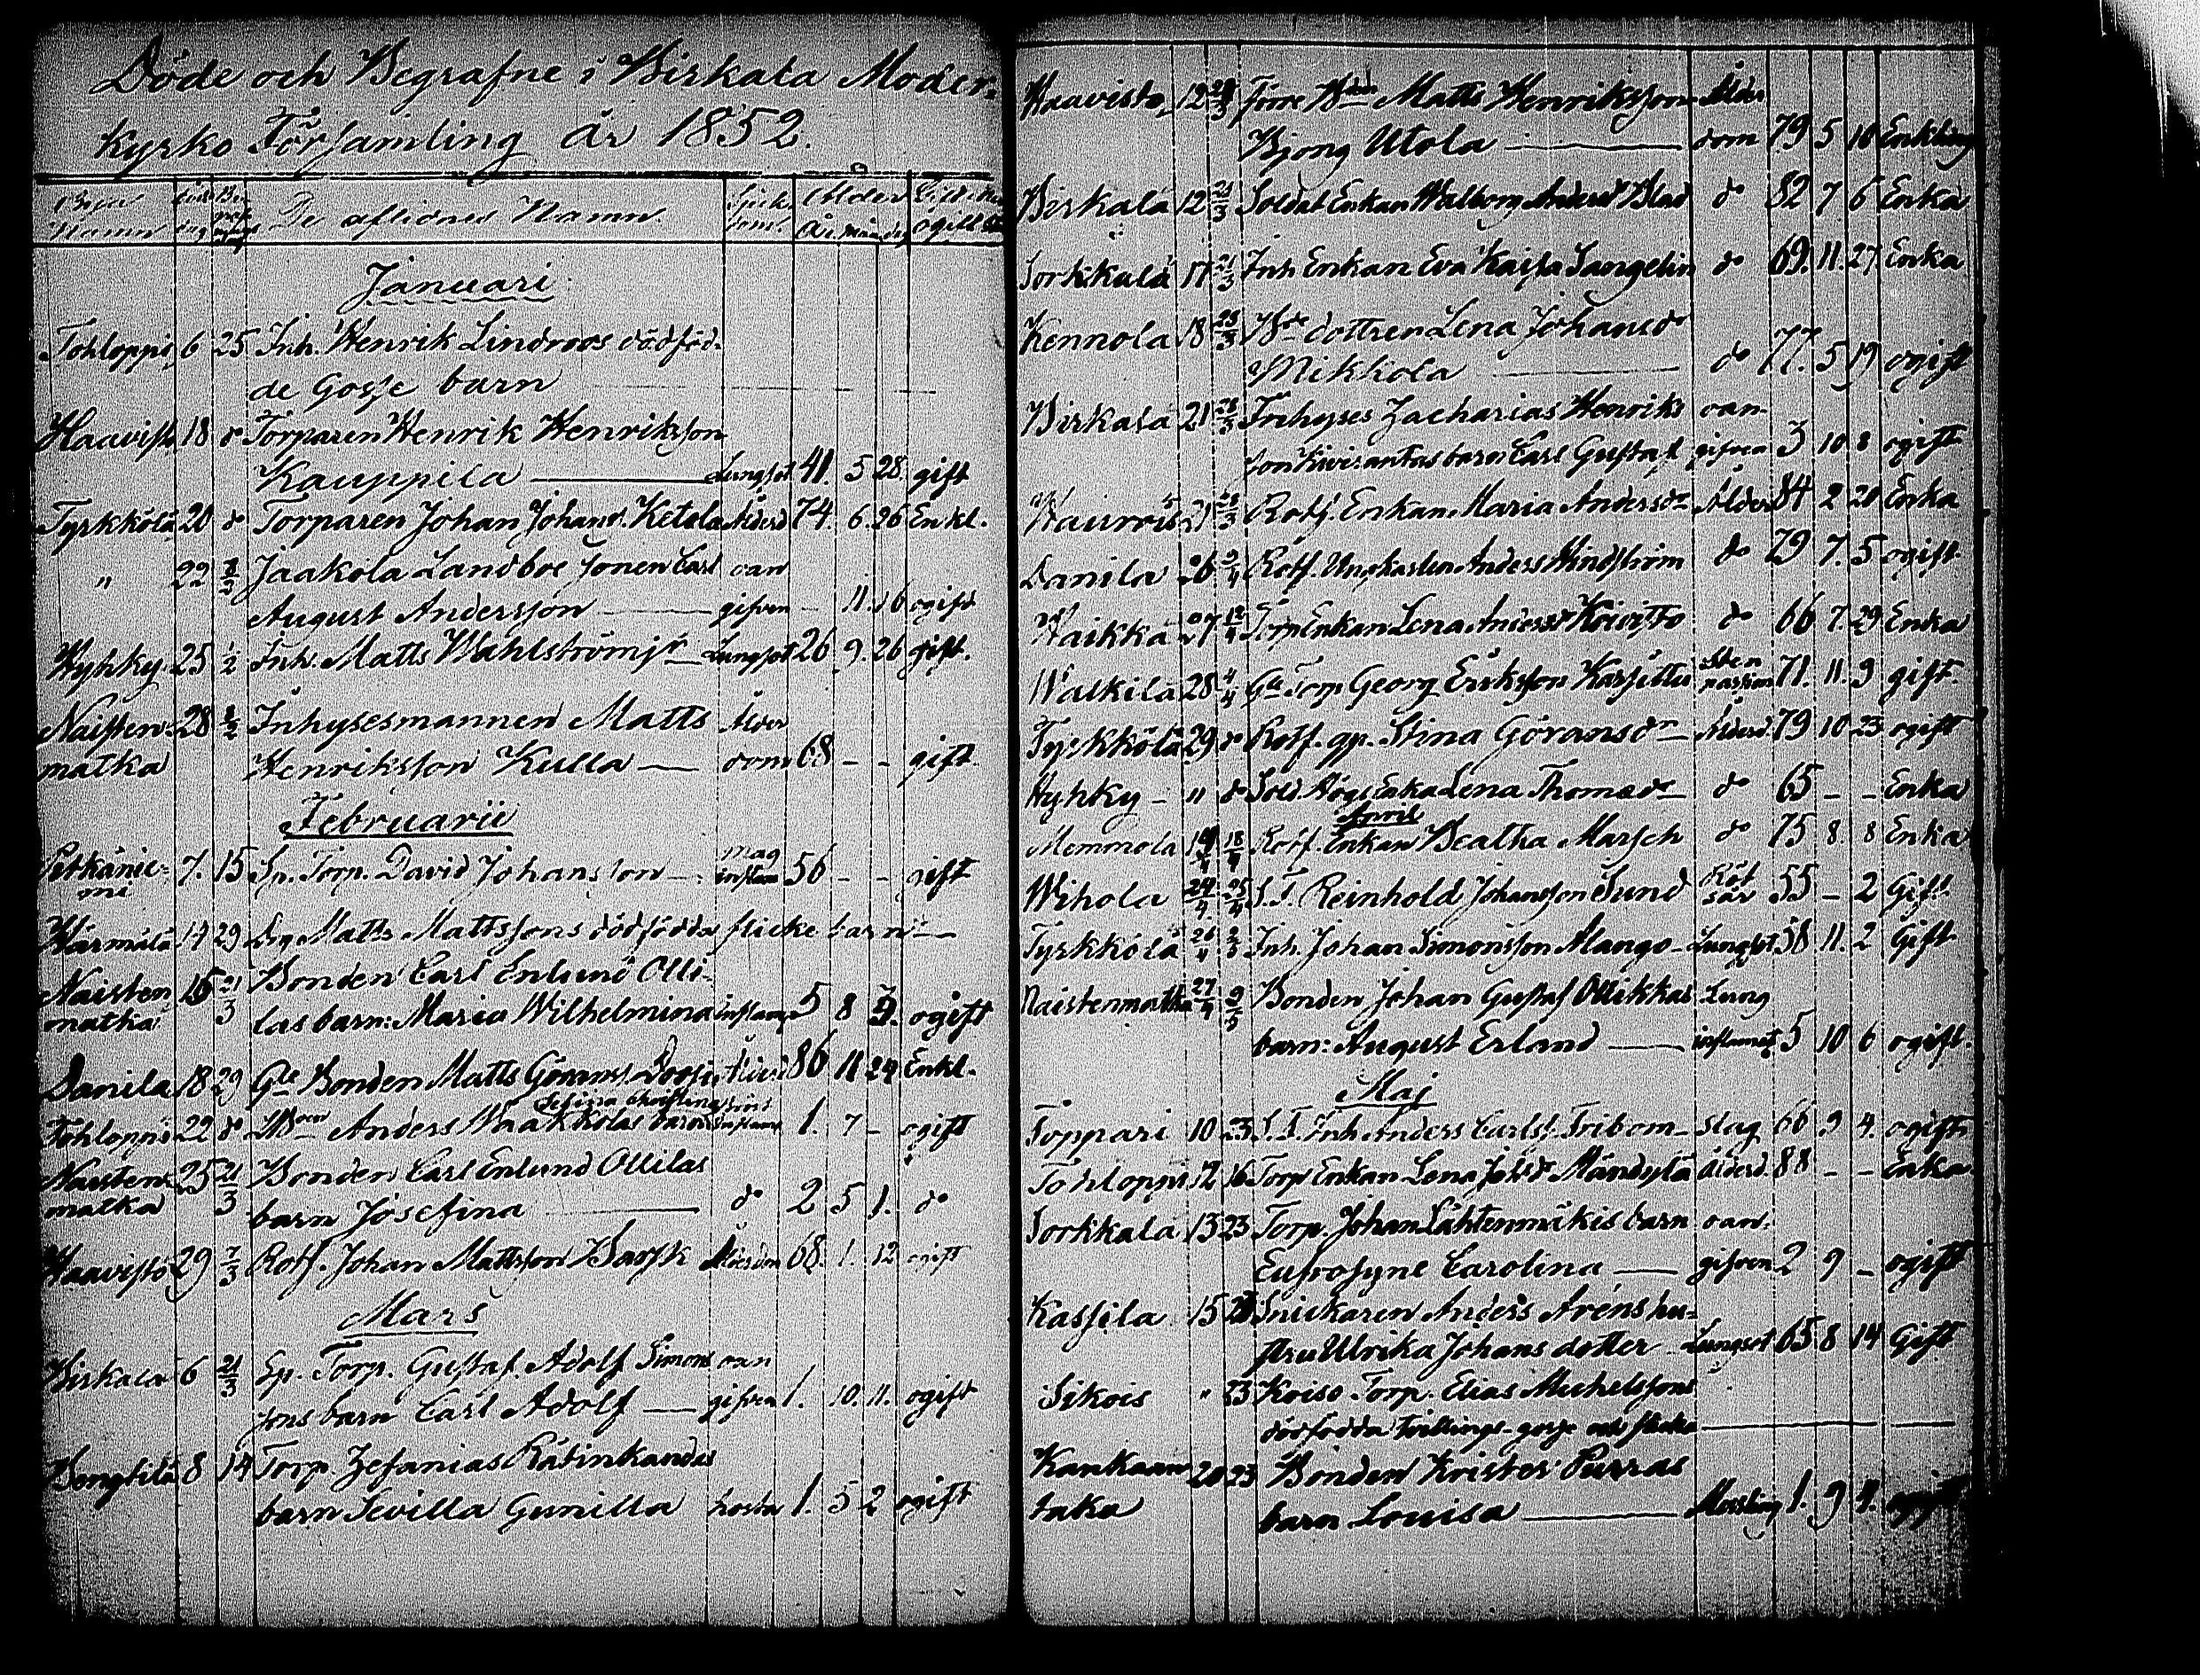 Döde och Begrafne i Birkala Moder-
kyrko Församling År 1852.
Byns Namn död dag De aflidnes Namn Sjuk dom Ålder År mån dag Gift ogift
Januari
Tohloppi 6 25 Inh. Henrik Lindroos dödföd-
de Gosse barn
Haavisto 18 do Torparen Henrik Henriksson
Kauppila Lungsot 41. 5 28. gift
Tyrkkölä 20 do Torparen Johan Johans. Ketola Ålderd 74. 6. 26 Enkl.
" 22 8/2 Jaakola Landboe Sonen Carl oan
August Andersson gifven - 11. 16 ogift
Hyhky 25 1/2 Inh. Matts Wahlström jr Lungsot 26 9. 26 gift.
Naisten- 28 8/2 Inhysesmannen Matts Ålder
matka Henriksson Kulla dom 68 - - gift.
Februarii
Petkänie- 7. 15 Sp. Torp. David Johansson mag
mi inflam 56 - - gift
Härmälä 14 29 Drg Matts Mattssons dödfödda flicke barn
Naisten 15 21/3 Bonden Carl Enlund Olli-
matka las barn: Maria Wilhelmina inflam 5 8 9. ogift
Danila 18 29 Gle Bonden Matts Görans. 86 11 24 Enkl.
Serina Christina
Tohloppi 22 do Anders Waakkolas barn inflam 1. 7 - ogift
Naisten- 25 21/3 Bonden Carl Enlund Ollilas
matka barn Josefina do 2 5 1. do
Haavisto 29 7/3 Rotf. Johan Mattsson Barsk Ålderdom 68. 1. 12 ogift
Mars
Birkala 6 21/3 Sp. Torp. Gustaf Adolf Simons oan
sons barn Carl Adolf gifven 1. 10. 11. ogift
8 14 Torp. Zefanias Rätinkandas
barn Sevilla Gunilla hosta 1. 5 2 ogift
Haavisto 12 28/3 Förre Bden Matts Henriksson Ålder
Utola dom 79 5 16 Enkling
Birkala 12 21/3 Soldat Enkan Walborg Andersdr Blad do 82 7 6 Enka
Sorkkala 17 21/3 Inh. Enkan Eva Kaisa Sangelin do 69. 11. 27 Enka
Kennola 18 28/3 Bde dottren Lena Johansdr
Mikkola do 77. 5 19 ogift
Birkala 21 28/3 Inhyses Zacharias Henriks oan
son Kivirantas barn Carl Gustaf gifven 3 10 8 ogift
21 28/3 Rotf. Enkan Maria Andersdr Ålder 84 2 20 Enka
Danila 26 Rotf. Ungkarlen Anders Windström do 79 7. 5 ogift
Waikka 27 12/4 Torp Enkan Lena Andersdr Koivisto do 66 7 29 Enka
Walkila 28 4/4 Gle Torp Georg Eriksson Karsittu Sten passion 71. 11. 9 gift
Tyrkkölä 29 do Rotf. qp. Stina Göransdr Ålderd. 79 10 23 ogift
Hyhky - " do Sold. Högs Enka Lena Thomædr do 65 - - Enka
April
Memmola 18/4 Rotf. Enkan Beatha Marsch do 75 8. 8 Enka
Wihola 24/4 25/4 S.T. Reinhold Johansson Sund Röt sår 55 - 2 Gift
Tyrkkölä 26/4 2/5 Inh. Johan Simonsson Alango Lungsot 58 11. 2 Gift
Naistenmatka 27/4 9/5 Bonden Johan Gustaf Ollikkas Lung
barn: August Erland inflamat 5 10 6 ogift.
Maj
Toppari 10 23 S.T. Inh. Anders Carlss. Tribom Slag 66 9 4. ogift
Tohloppi 12 16 Torp Enkan Lena Johsdr Mändylä Ålderd. 88 - - Enka
Sorkkala 13 23 Torp. Johan Lähtenmäkis barn oan-
Eufrosyne Carolina gifven 2 9 - ogift
Kassila 15 Snickaren Anders Aréns hu-
stru Ulrika Johans dotter Lungsot 65 8 14 Gift
Sikois " 23 Koiso Torp. Elias Michelssons
dödfödda Tvillings-gosse och flicka
Kankaan 20 23 Bonden Krister Purras
taka barn Louisa Messling 1. 9 4. ogift